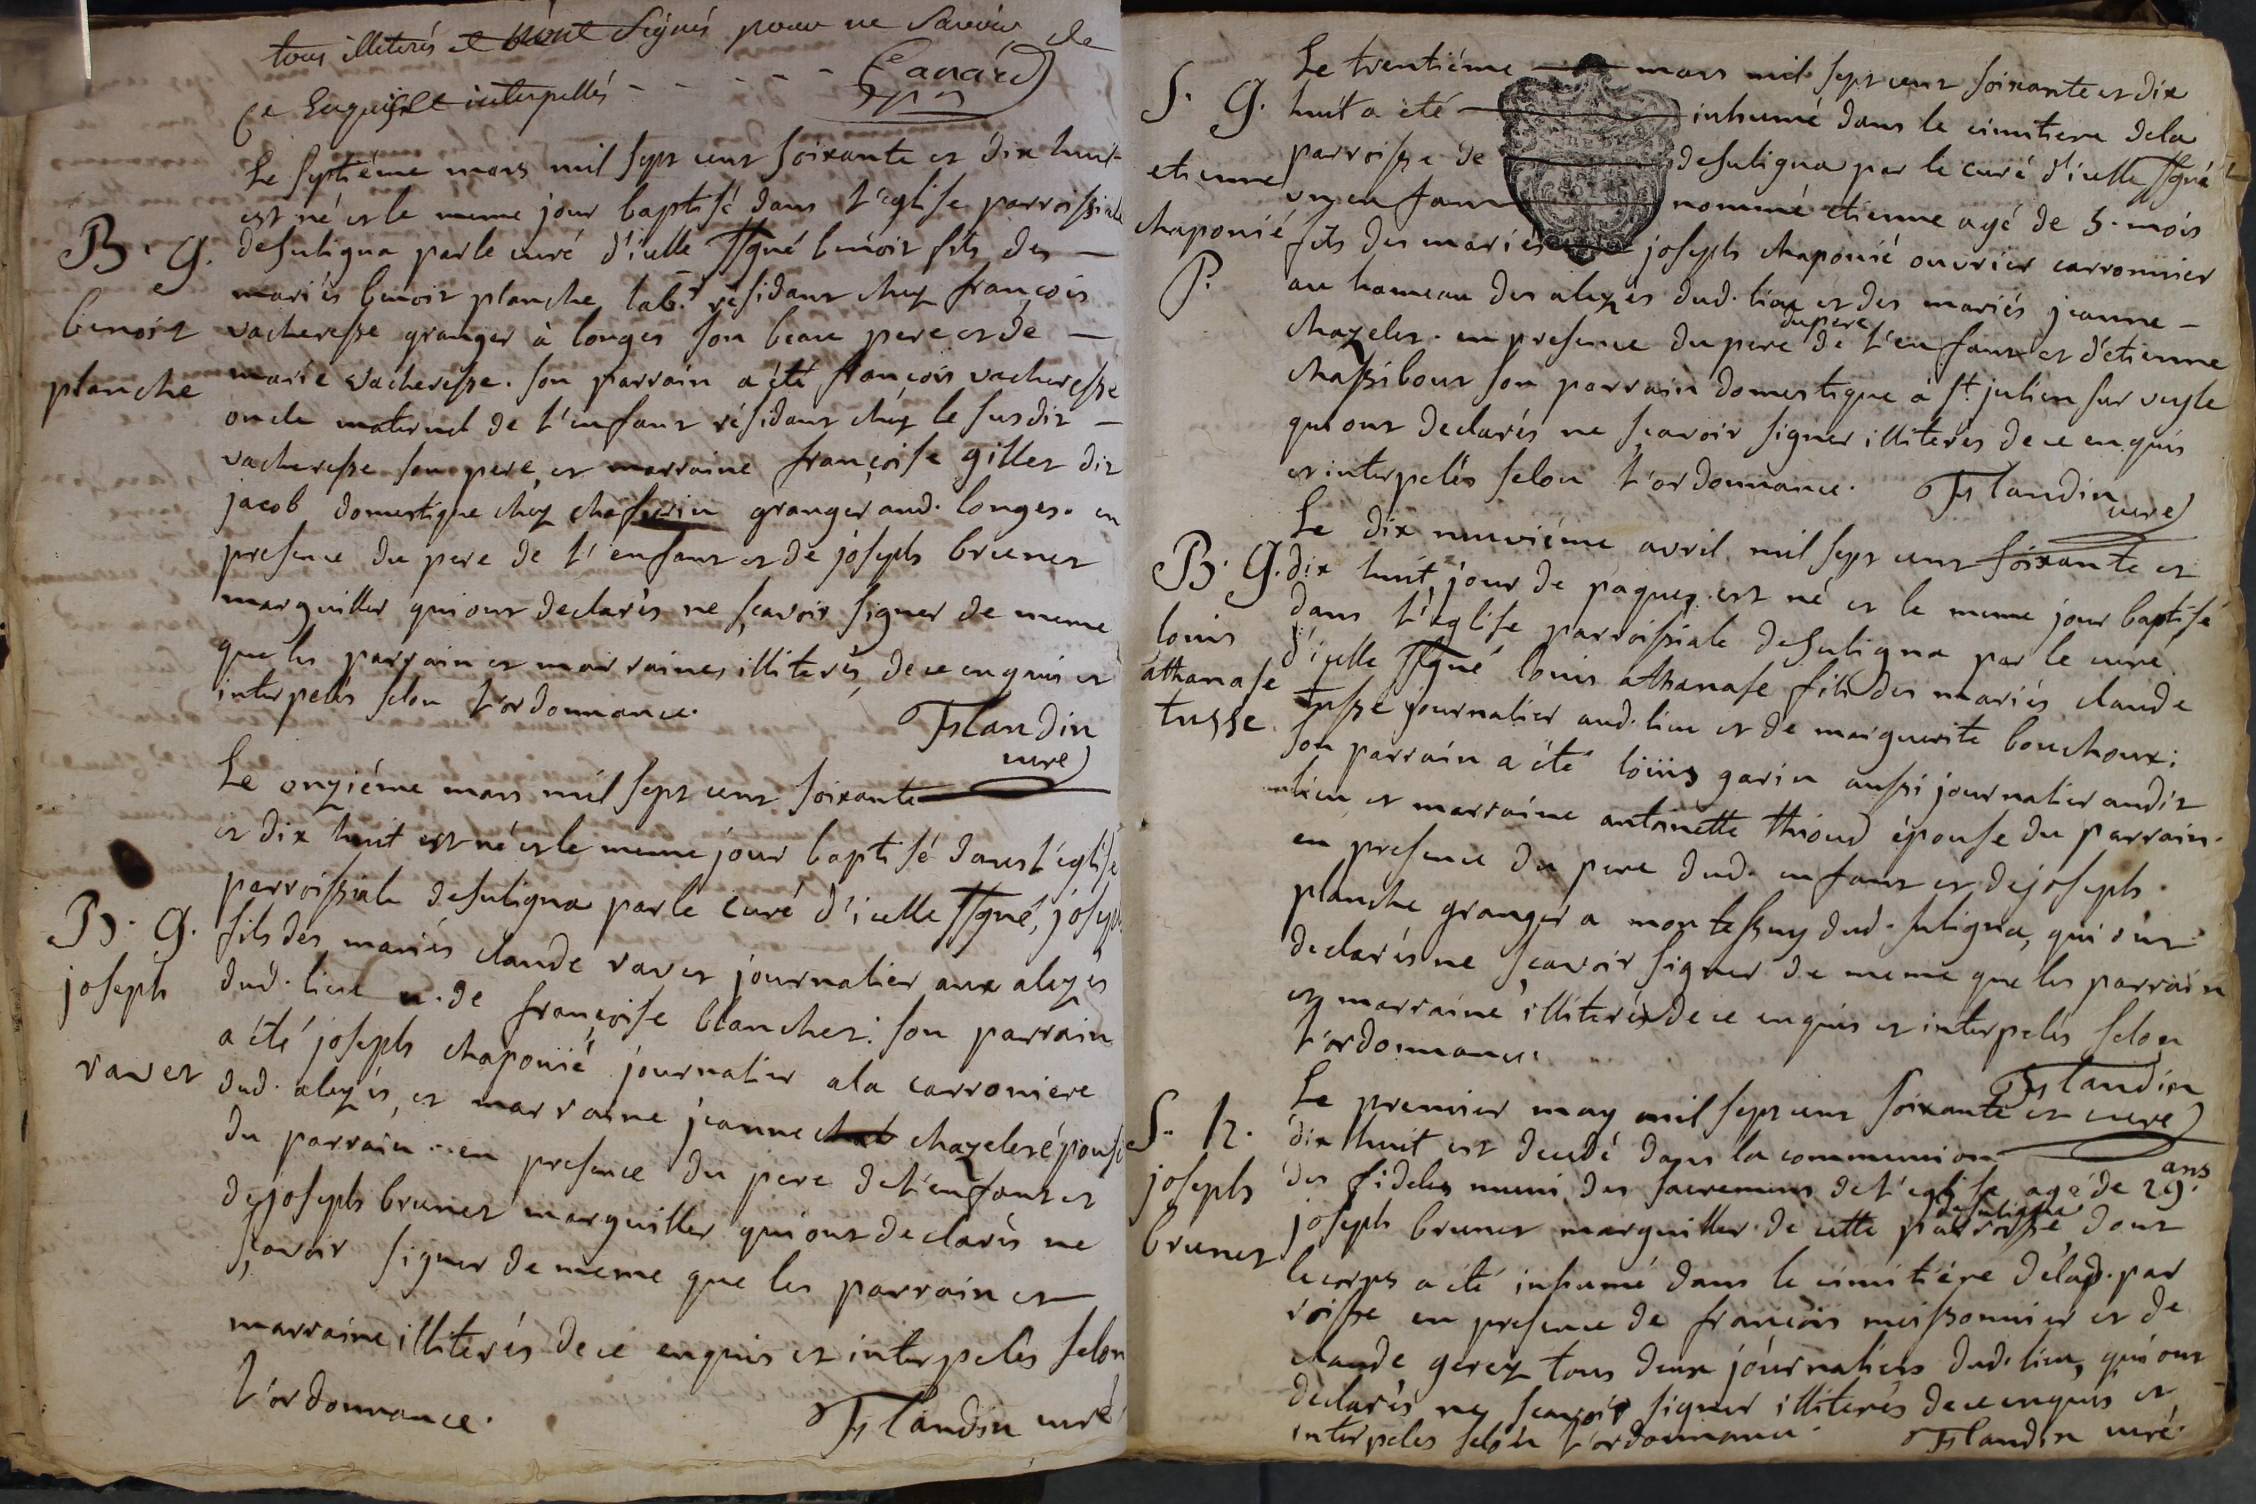 tous illiterés et n'ont signés pour ne savoir de
ce enquis et interpellés - - - - - Canard
Le septiéme mars mil sept cent soixante et dix huit
est né et le meme jour baptisé dans l'eglise parroissiale
de suligna par le curé d'icelle ssgné benoit fils des —
mariés benoit planche lab.r résidant chez françois
vacheresse granger à longes son beau pere et de —
marie vacheresse. son parrain a été françois vacheresse
oncle maternel de l'enfant résidant chéz le susdit —
vacheresse son pere, et marraine françoise gillet dit
jacob domestique chez granger aud. longes. en
presence du pere de l'enfant et de joseph brunet
marguiller qui ont declarés ne sçavoir signer de meme
que les parrain et marraines illiterés, de ce enquis et
interpelés selon l'ordonnance.
Flandin
curé
B. G.
benoit
planche
Le onziéme mars mil sept cent soixante
et dix huit est né et le meme jour baptisé dans l'eglise
parroissiale de suligna par le curé d'icelle ssgné, joseph
fils des mariés claude ravet journalier aux alezes
dud. lieu et de françoise blanchet: son parrain
a été joseph chaponié journalier a la carroniere
dud. alezes, et marraine jeanne chazelet épouse
du parrain. en presence du pere de l'enfant et
de joseph brunet marguiller qui ont declarés ne
sçavoir signer de meme que les parrain et
marraine illiterés de ce enquis et interpelés selon
l'ordonnance.
Flandin curé
B. G.
joseph
ravet
S. G.
etienne
chaponié
P.
Le trentiéme mars mil sept cent soixante et dix
huit a été inhumé dans le cimitiere de la
parroisse de de suligna par le curé d'icelle ssgné
un enfant nommé etienne agé de 5. mois
fils des mariés joseph chaponié ouvrier carronnier
au hameau des alezes dud. lieu et des mariés jeanne —
chazelet. en presence du pere du pere de l'enfant et d'étienne
chassibout son parrain domestique à st. julien sur veyle
qui ont declarés ne sçavoir signer illiterés de ce enquis
et interpelés selon l'ordonnance. Flandin
curé
B. G.
louis
athanase
tusse
Le dix neuviéme avril mil sept cent soixante et
dix huit, jour de paques est né et le meme jour baptisé
dans l'eglise parroissiale de suligna par le curé
d'icelle ssgné louis athanase fils des mariés claude
tusse journalier aud. lieu et de marguerite bouchoux:
son parrain a été loüis garin aussi journalier audit
lieu et marraine antoinette thioud épouse du parrain.
en presence du pere dud. enfant et de joseph
planche granger a montessuy dud. suligna, qui ont
declarés ne sçavoir signer de meme que les parrain
et marraine illiterés de ce enquis et interpelés selon
l'ordonnance.
Flandin
curé
S. h.
joseph
brunet
Le premier may mil sept cent soixante et
dix huit est decedé dans la communion
des fideles muni des sacremens de l'eglise agé de 29. ans
joseph brunet marguiller de cette parroisse de suligna dont
le corps a été inhumé dans le cimitiére de lad. par
roisse en presence de françois meissonnier et de
claude gerez tous deux journaliers dud. lieu, qui ont
declarés ne sçavoir signer illiterés de ce enquis et
interpelés selon l'ordonnance. Flandin curé